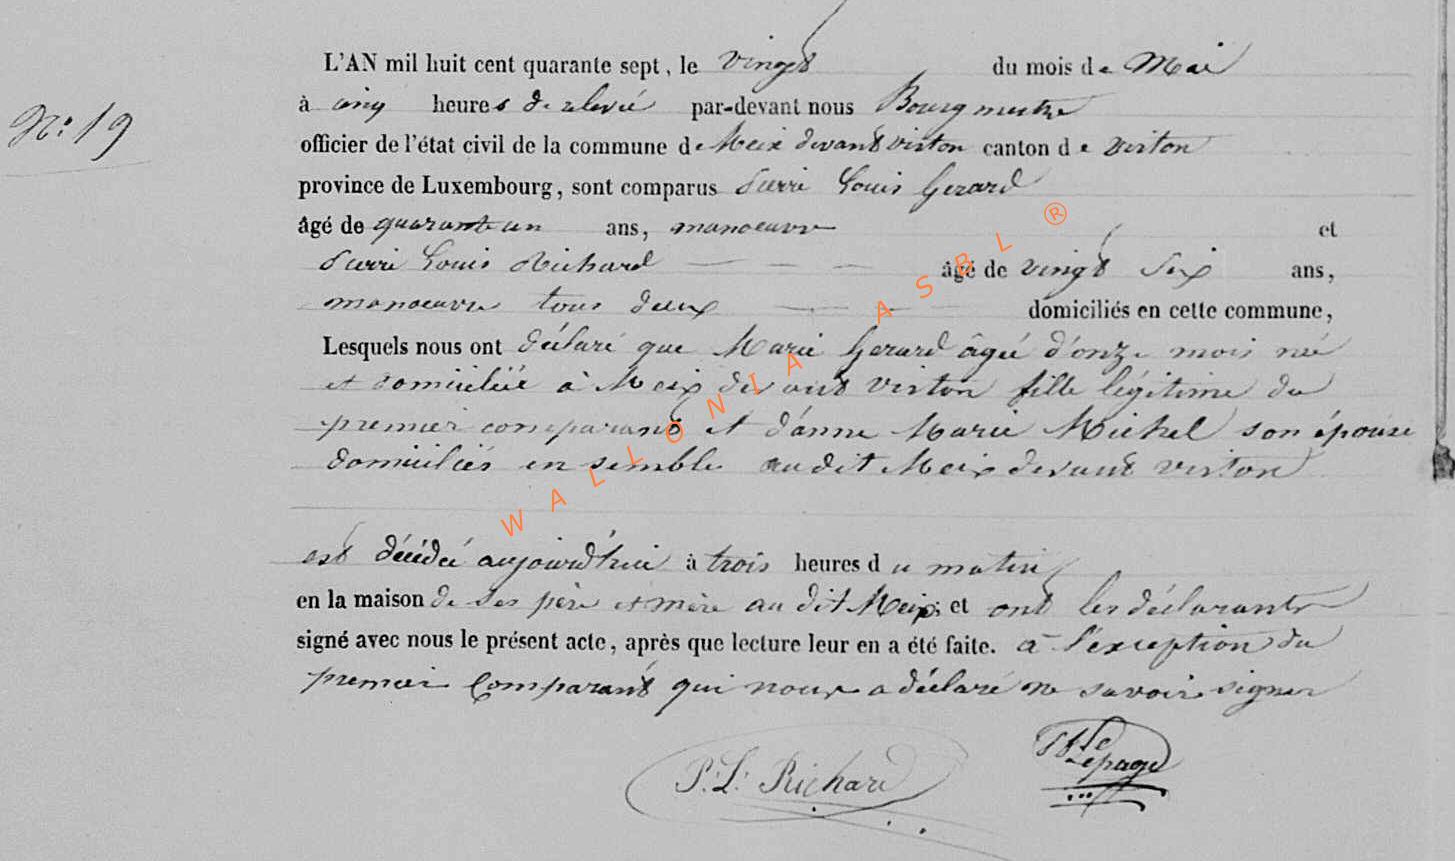 L'AN mil huit cent quarante sept, le vingt du mois de Mai
N° 19
à cinq heures de relevée par-devant nous Bourgmestre
officier de l'état civil de la commune de Meix devant virton canton de virton
province de Luxembourg, sont comparus Pierre Louis Gerard
âgé de quarante un ans, manoeuvre et
Pierre Louis Richard âgé de vingt six ans,
manoeuvre tous deux domiciliés en cette commune,
Lesquels nous ont déclaré que Marie Gerard âgée d'onze mois née
et domiciliée à Meix devant virton fille légitime du
premier comparant et d'anne Marie Michel son épouse
domiciliés ensemble audit Meix devant virton
est décédée aujourd'hui à trois heures du matin
en la maison de ses père et mère au dit Meix; et ont les déclarants
signé avec nous le présent acte, après que lecture leur en a été faite. a l'exception du
premier comparant qui nous a déclaré ne savoir signer
P. L. Richard
Lepage
WALLONIA ASBL ®